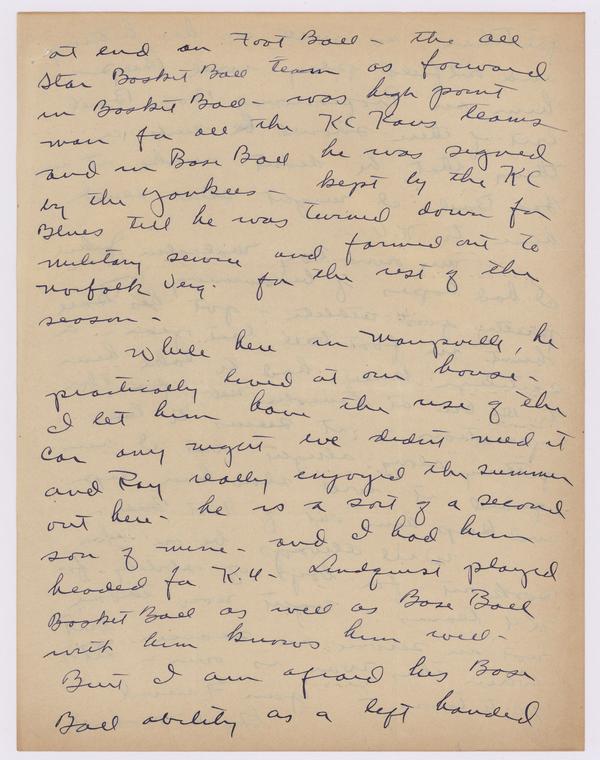 at end on Foot Ball - the all
Star Basket Ball Team as forward
in Basket Ball - was high point
man for all the KC Kans teams
and in Base Ball he was signed
by the Yankees - kept by the KC
Blues till he was turned down for
military service and farmed out to
Norfolk Verg. for the rest of the
season -
While here in Marysville, he
practically lived at our house -
I let him have the use of the
Car any night we didn't need it
and Ray really enjoyed the summer
out here - he is a sort of a second
son of mine - and I had him
headed for K.U - Lindquist played
Basket Ball as well as Base Ball
with him knows him well -
But I am afraid his Base
Ball ability as a left handed